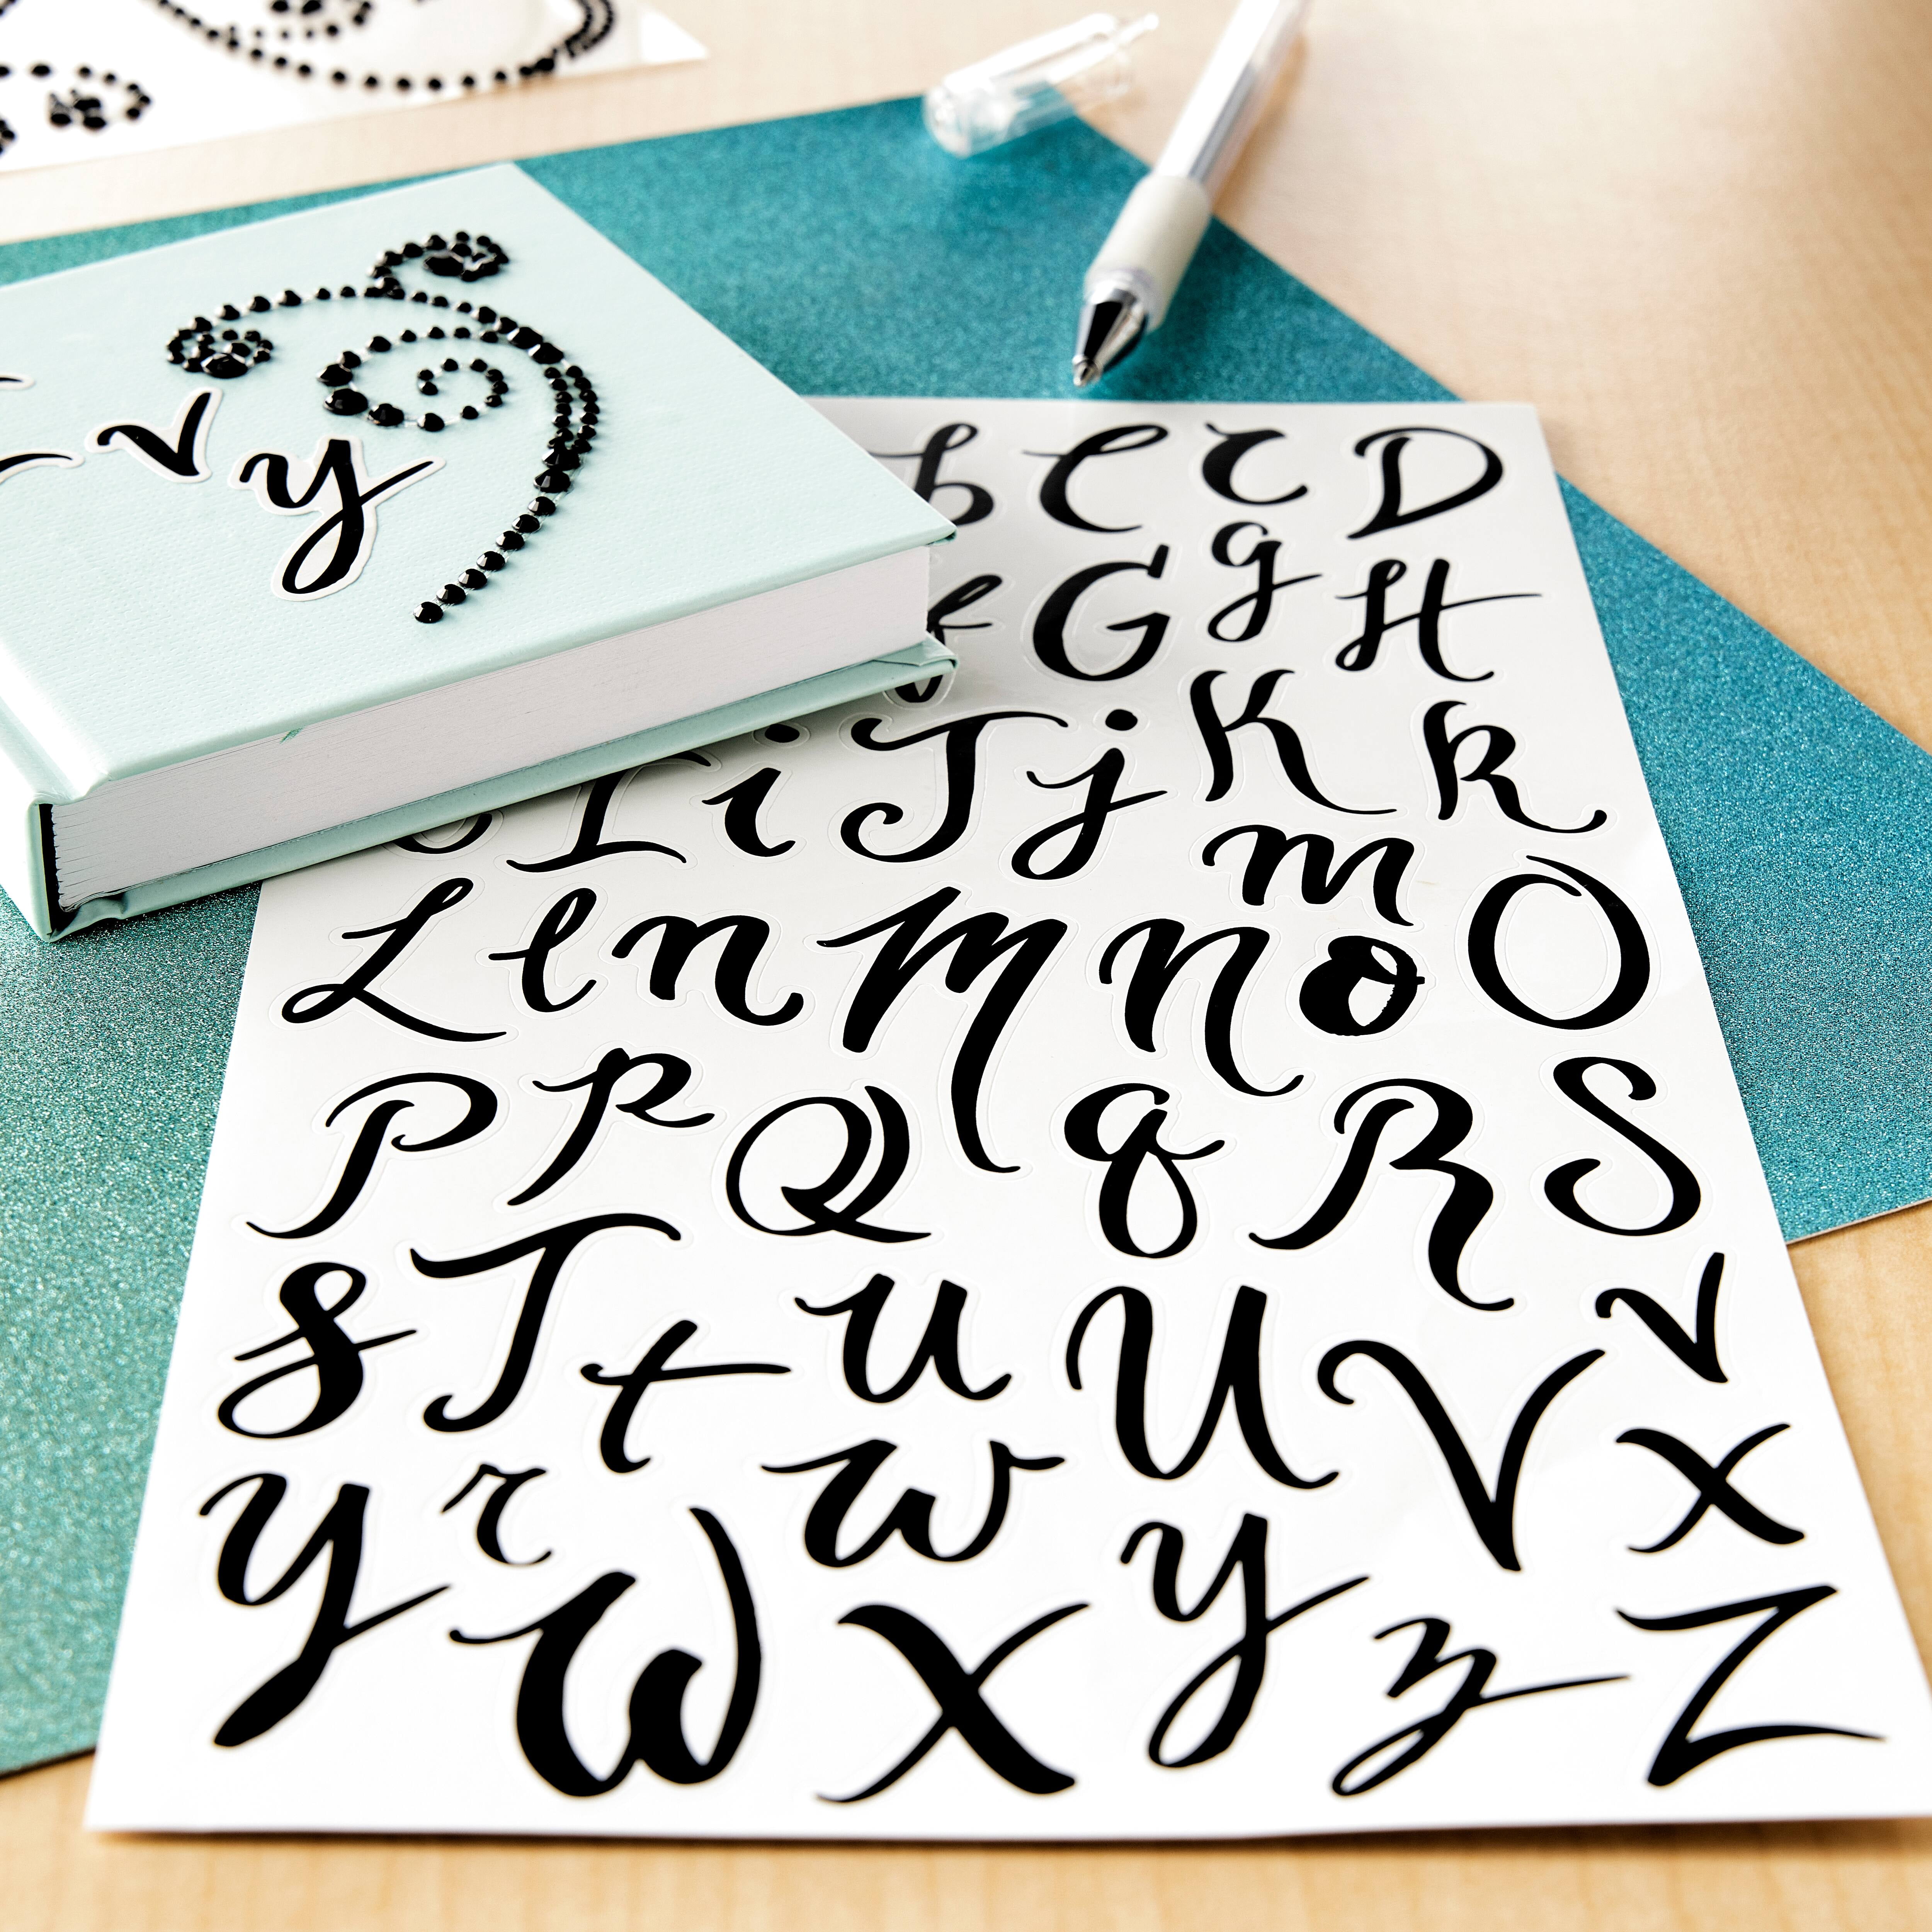 v y
b C c D
f G g H
I i J j K k
L l n M m N o O
P p Q q R S
s T t u U V v
y r W w X y z Z x